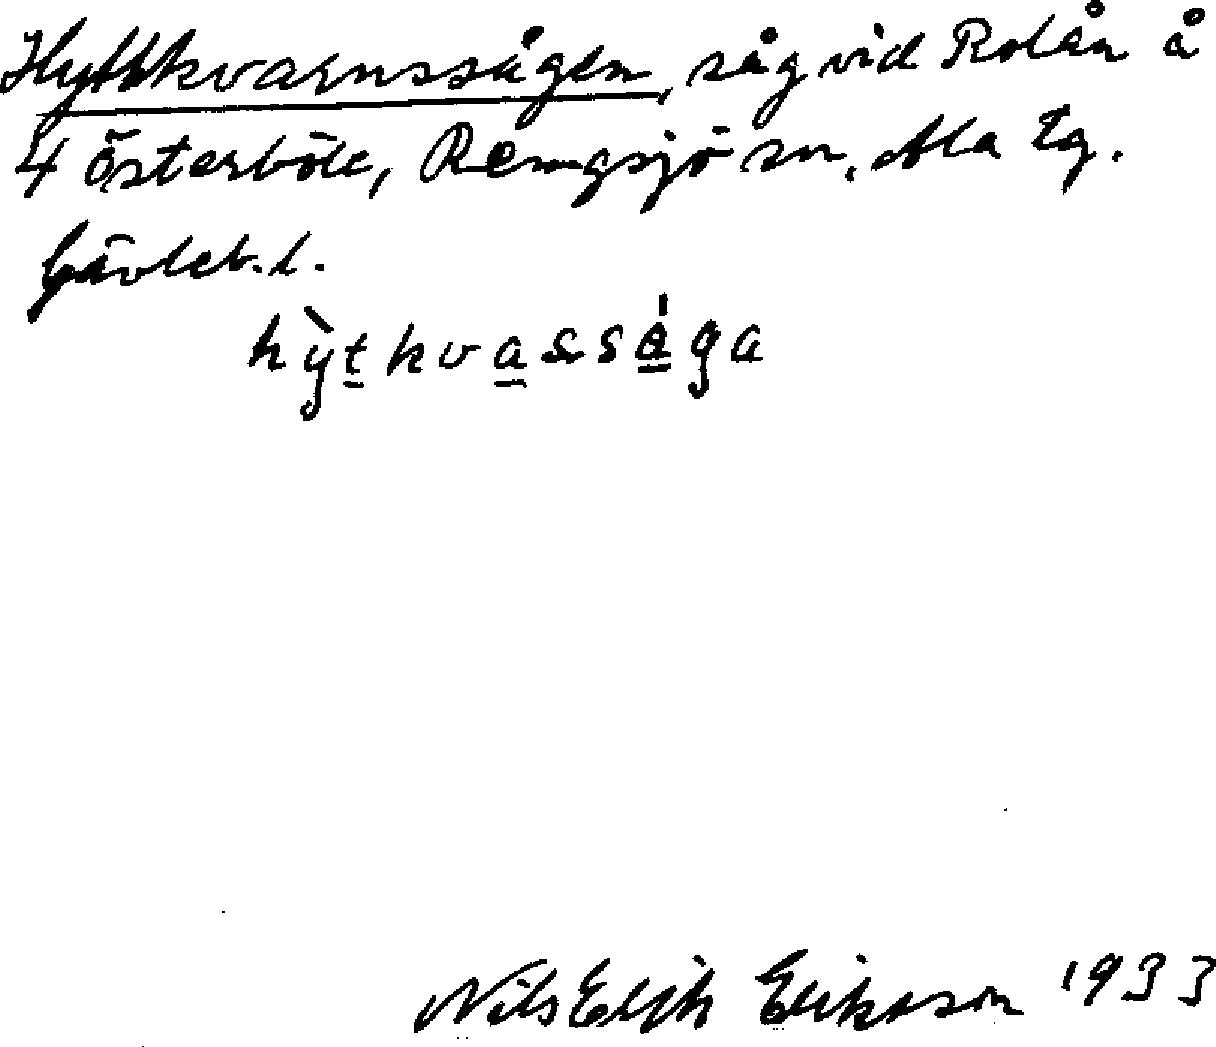 Hyttkvarnssågen, såg vid Rolån å
4 Österböle, Remgsjö sn, Ala tg.
Gävleb. l.
hỳtkvassága
Nils Erik Eriksson 1933